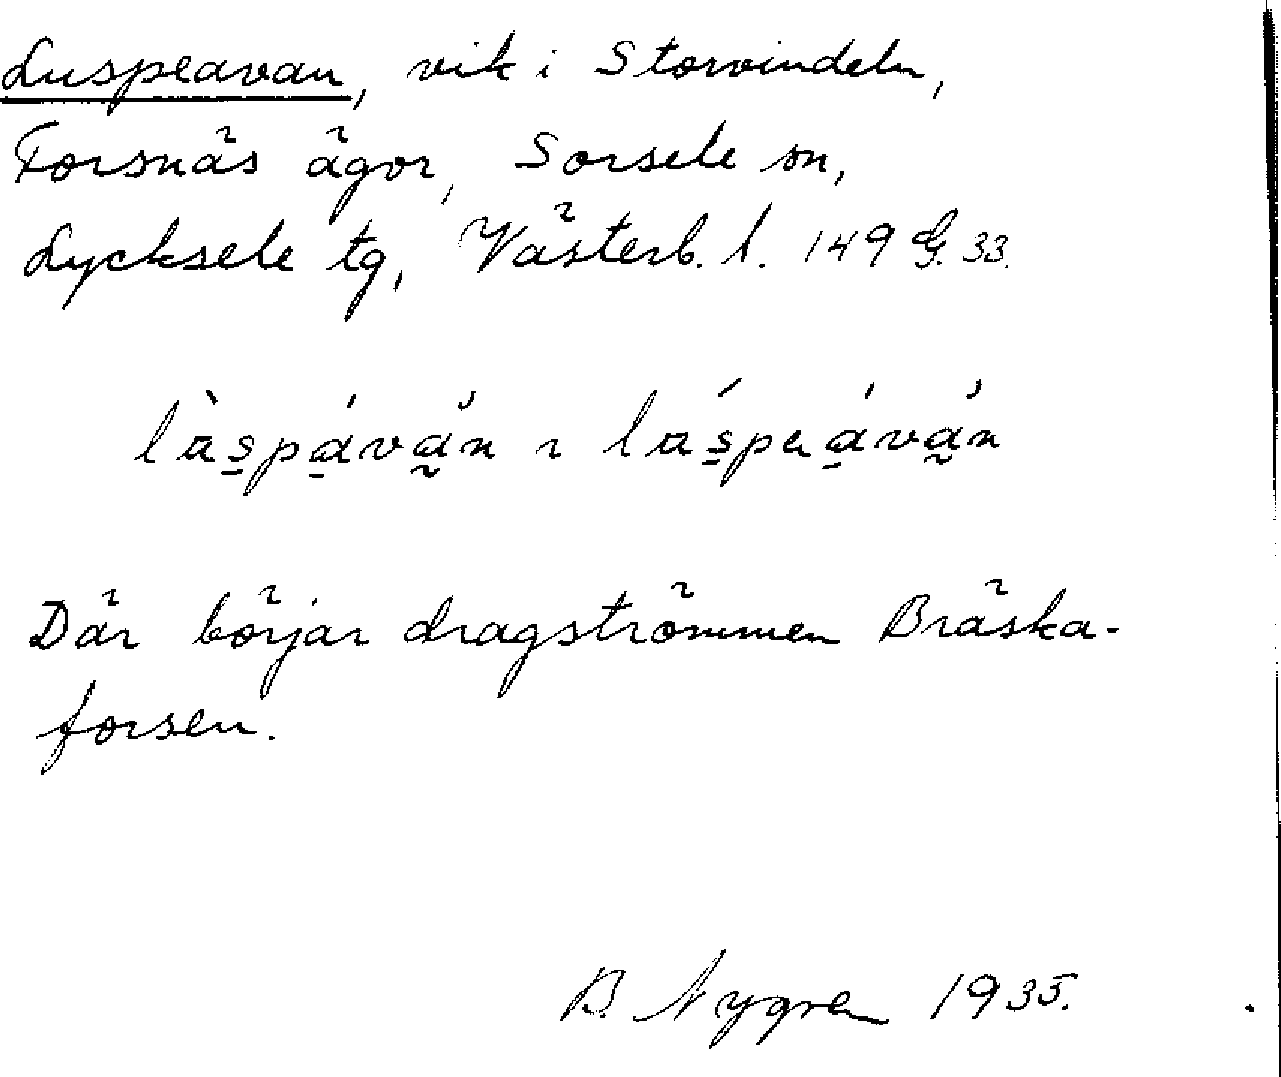 Luspeavan, vik i Storvindeln,
Forsnäs ägor, Sorsele sn,
Lycksele tg, Västerb. l. 149 G. 33.
Där börjar dragströmmen Bräska-
forsen.
B. Nygren 1935.